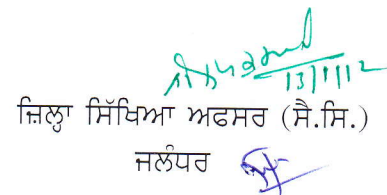 13/1/12
ਜ਼ਿਲ੍ਹਾ ਸਿੱਖਿਆ ਅਫਸਰ (ਸੈ.ਸਿ.)
ਜਲੰਧਰ